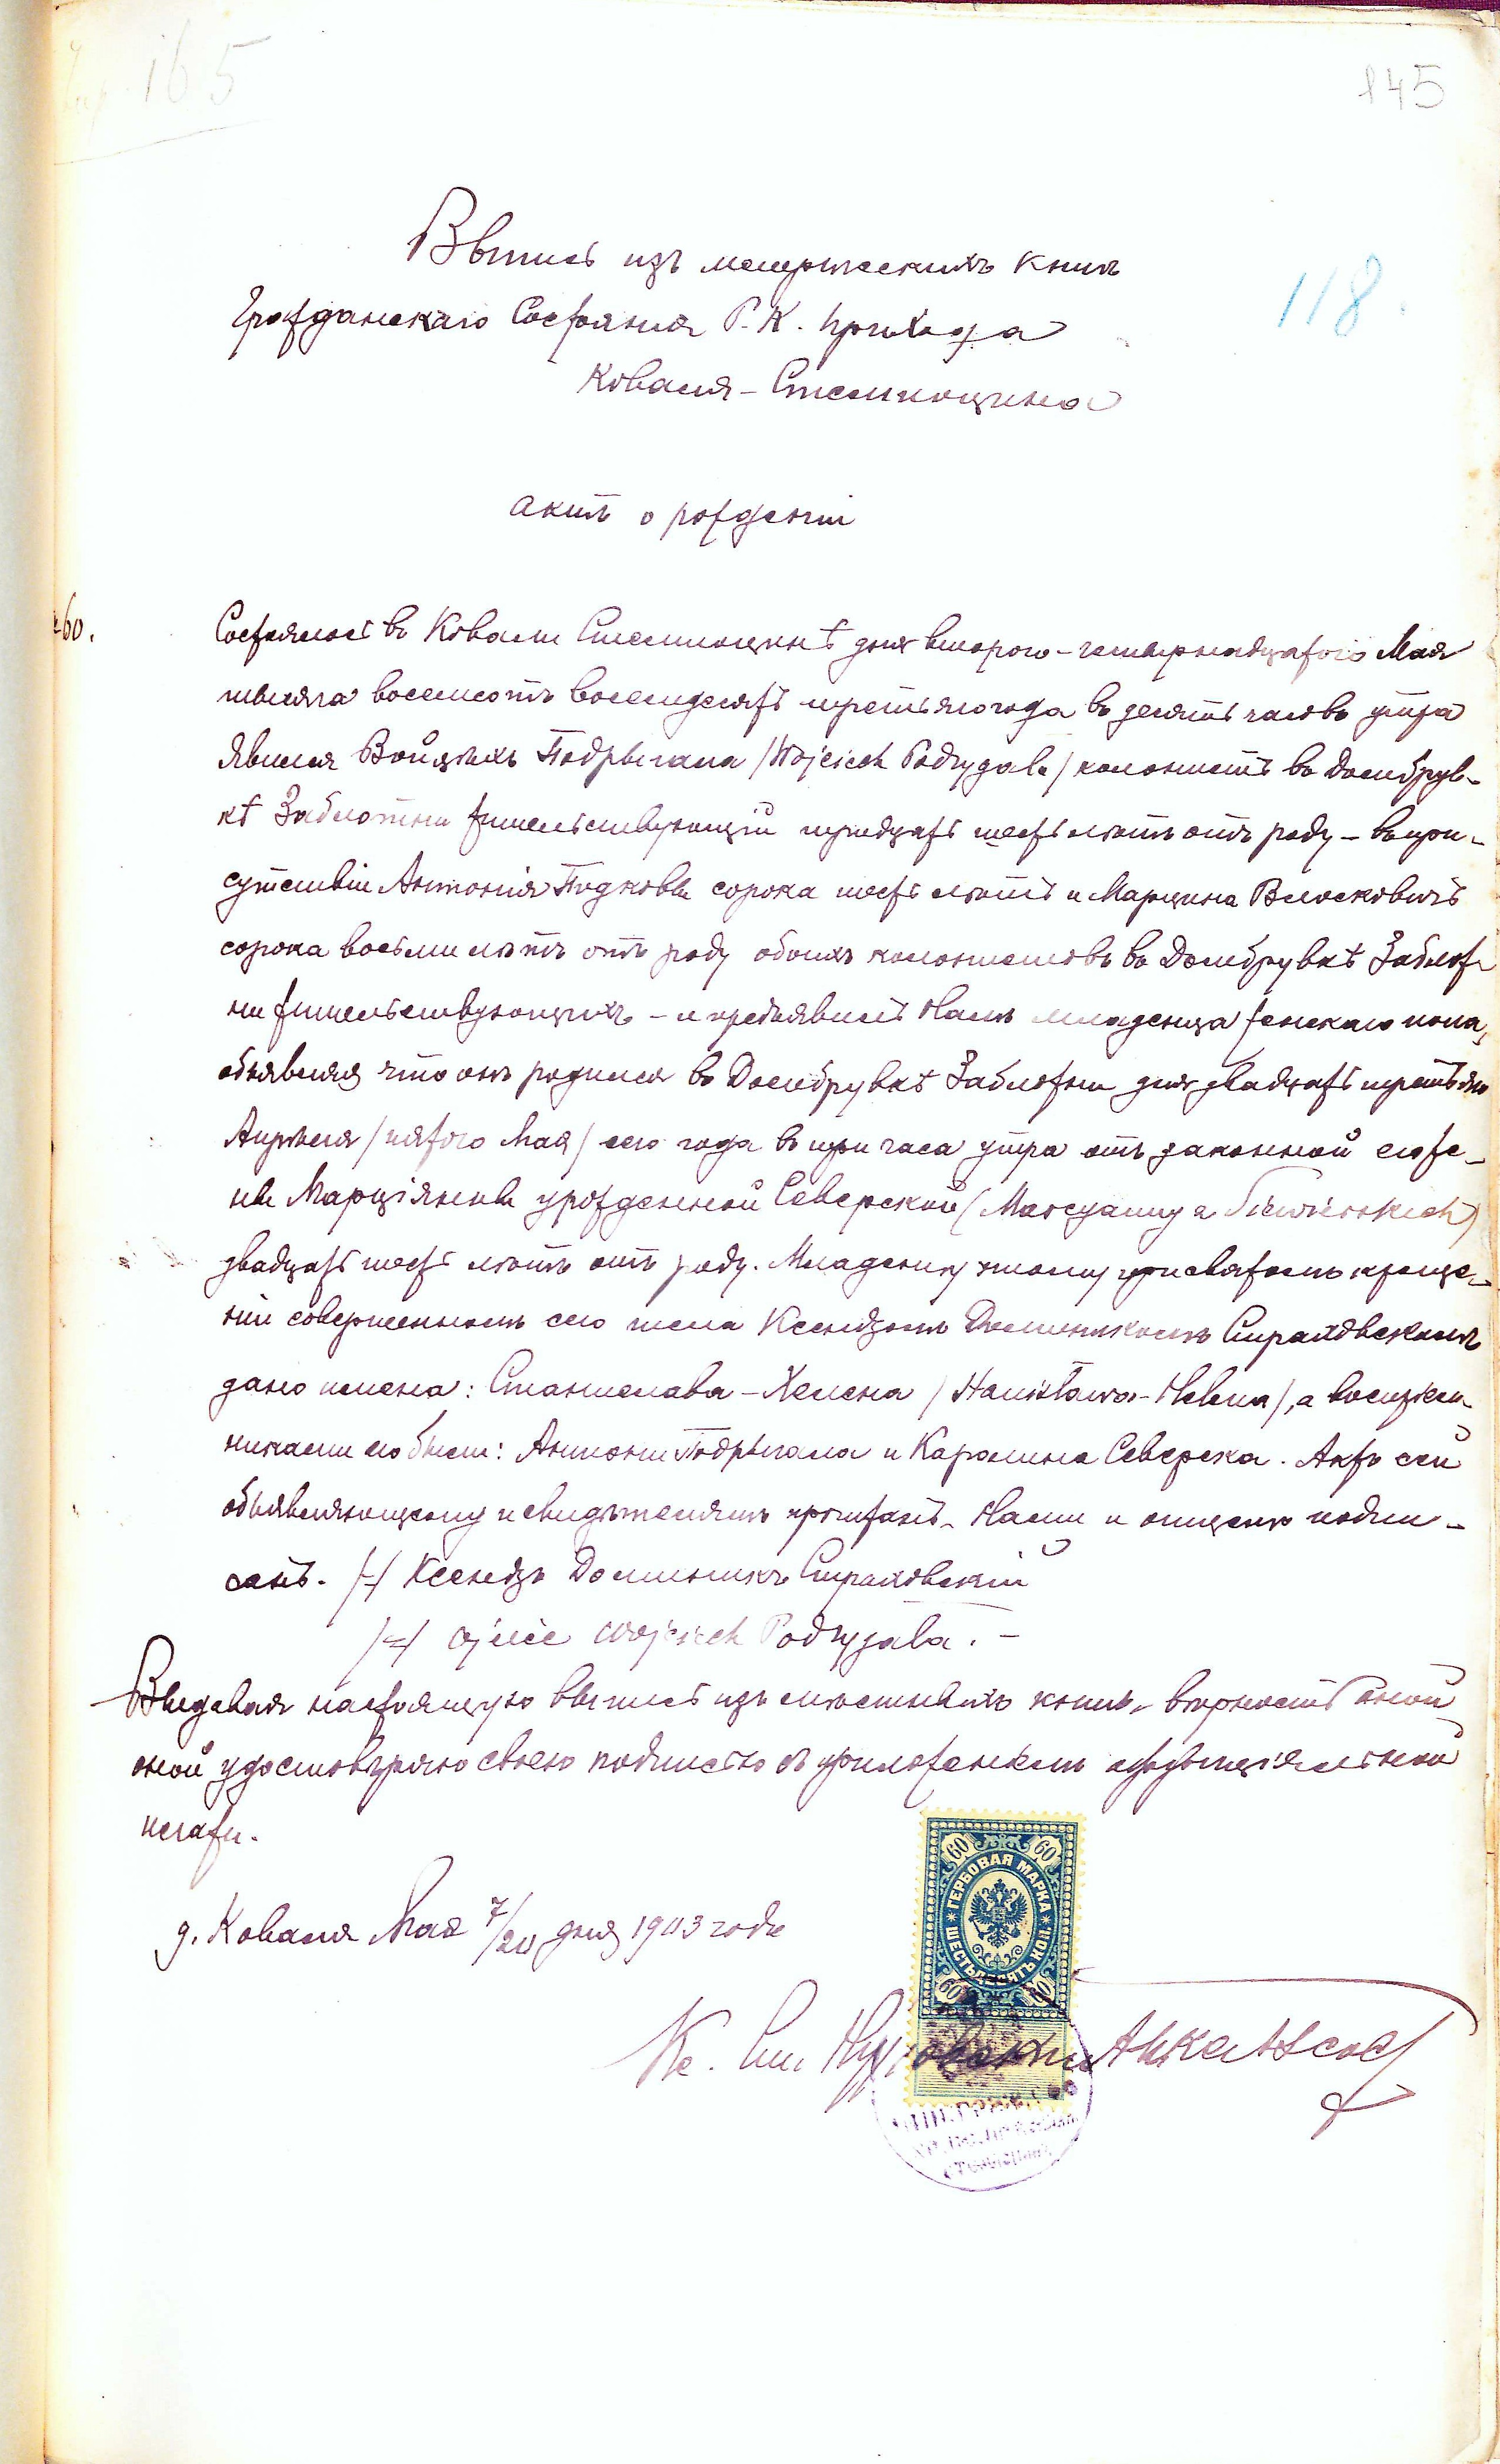 165
145
118.
Выпись изъ метрическихъ книгъ
Гражданскаго Состоянія Р. К. прихода
Коваля-Стемпоцина
Актъ о рожденіи
60.
Состоялось въ Ковали Стемпоцинѣ дня второго-четырнадцатого Мая
тысяча восемсотъ восемдесятъ третьяго года въ десять часовъ утра
Явился Войцѣхъ Подрыгала /Wojciech Podrygała/ колонистъ въ Домбрув-
кѣ Заблотни жительствующій тридцать шесть лѣтъ отъ роду - въ при-
сутствіи Антонія Подковы сорока шесть лѣтъ и Марцина Влосковичъ
сорока восьми лѣтъ отъ роду обоихъ колонистовъ въ Домбрувкѣ Заблот
ни жительствующихъ - и предъявилъ Намъ младенца женскаго пола,
объявляя что онъ родился въ Домбрувкѣ Заблотни дня двадцать третьяго
Апрѣля /пятого Мая/ сего года въ три часа утра отъ законной его же-
ны Марціянны урожденной Северской (Marcyanny z Siewierskich)
двадцать шесть лѣтъ отъ роду. Младенцу этому при святомъ креще-
ніи совершенномъ сего числа Ксендзомъ Доминикомъ Страховскимъ
дано имена: Станислава-Хелена /Stanisława-Helena/, а воспріем-
никами его были: Антони Подрыгала и Каролина Северска. Актъ сей
объявляющему и свидѣтелямъ прочитанъ, Нами и отцемъ подпи-
санъ. /-/ Ксендзъ Доминикъ Страховскій
/-/ ojciec Wojciech Podrygała. -
Выдавая настоящую выпись изъ мѣстныхъ книгъ, вѣрность оной
оной удостовѣряю своею подписью съ приложеніемъ
печати.
д. Коваля Мая 7/20 дня 1903 года
60 60
ГЕРБОВАЯ МАРКА
ШЕСТЬДЕСЯТЪ КОП.
60 60
Кс.